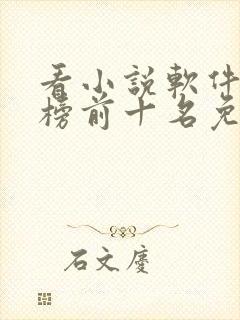 看小説軟件
榜前十名免
石文慶